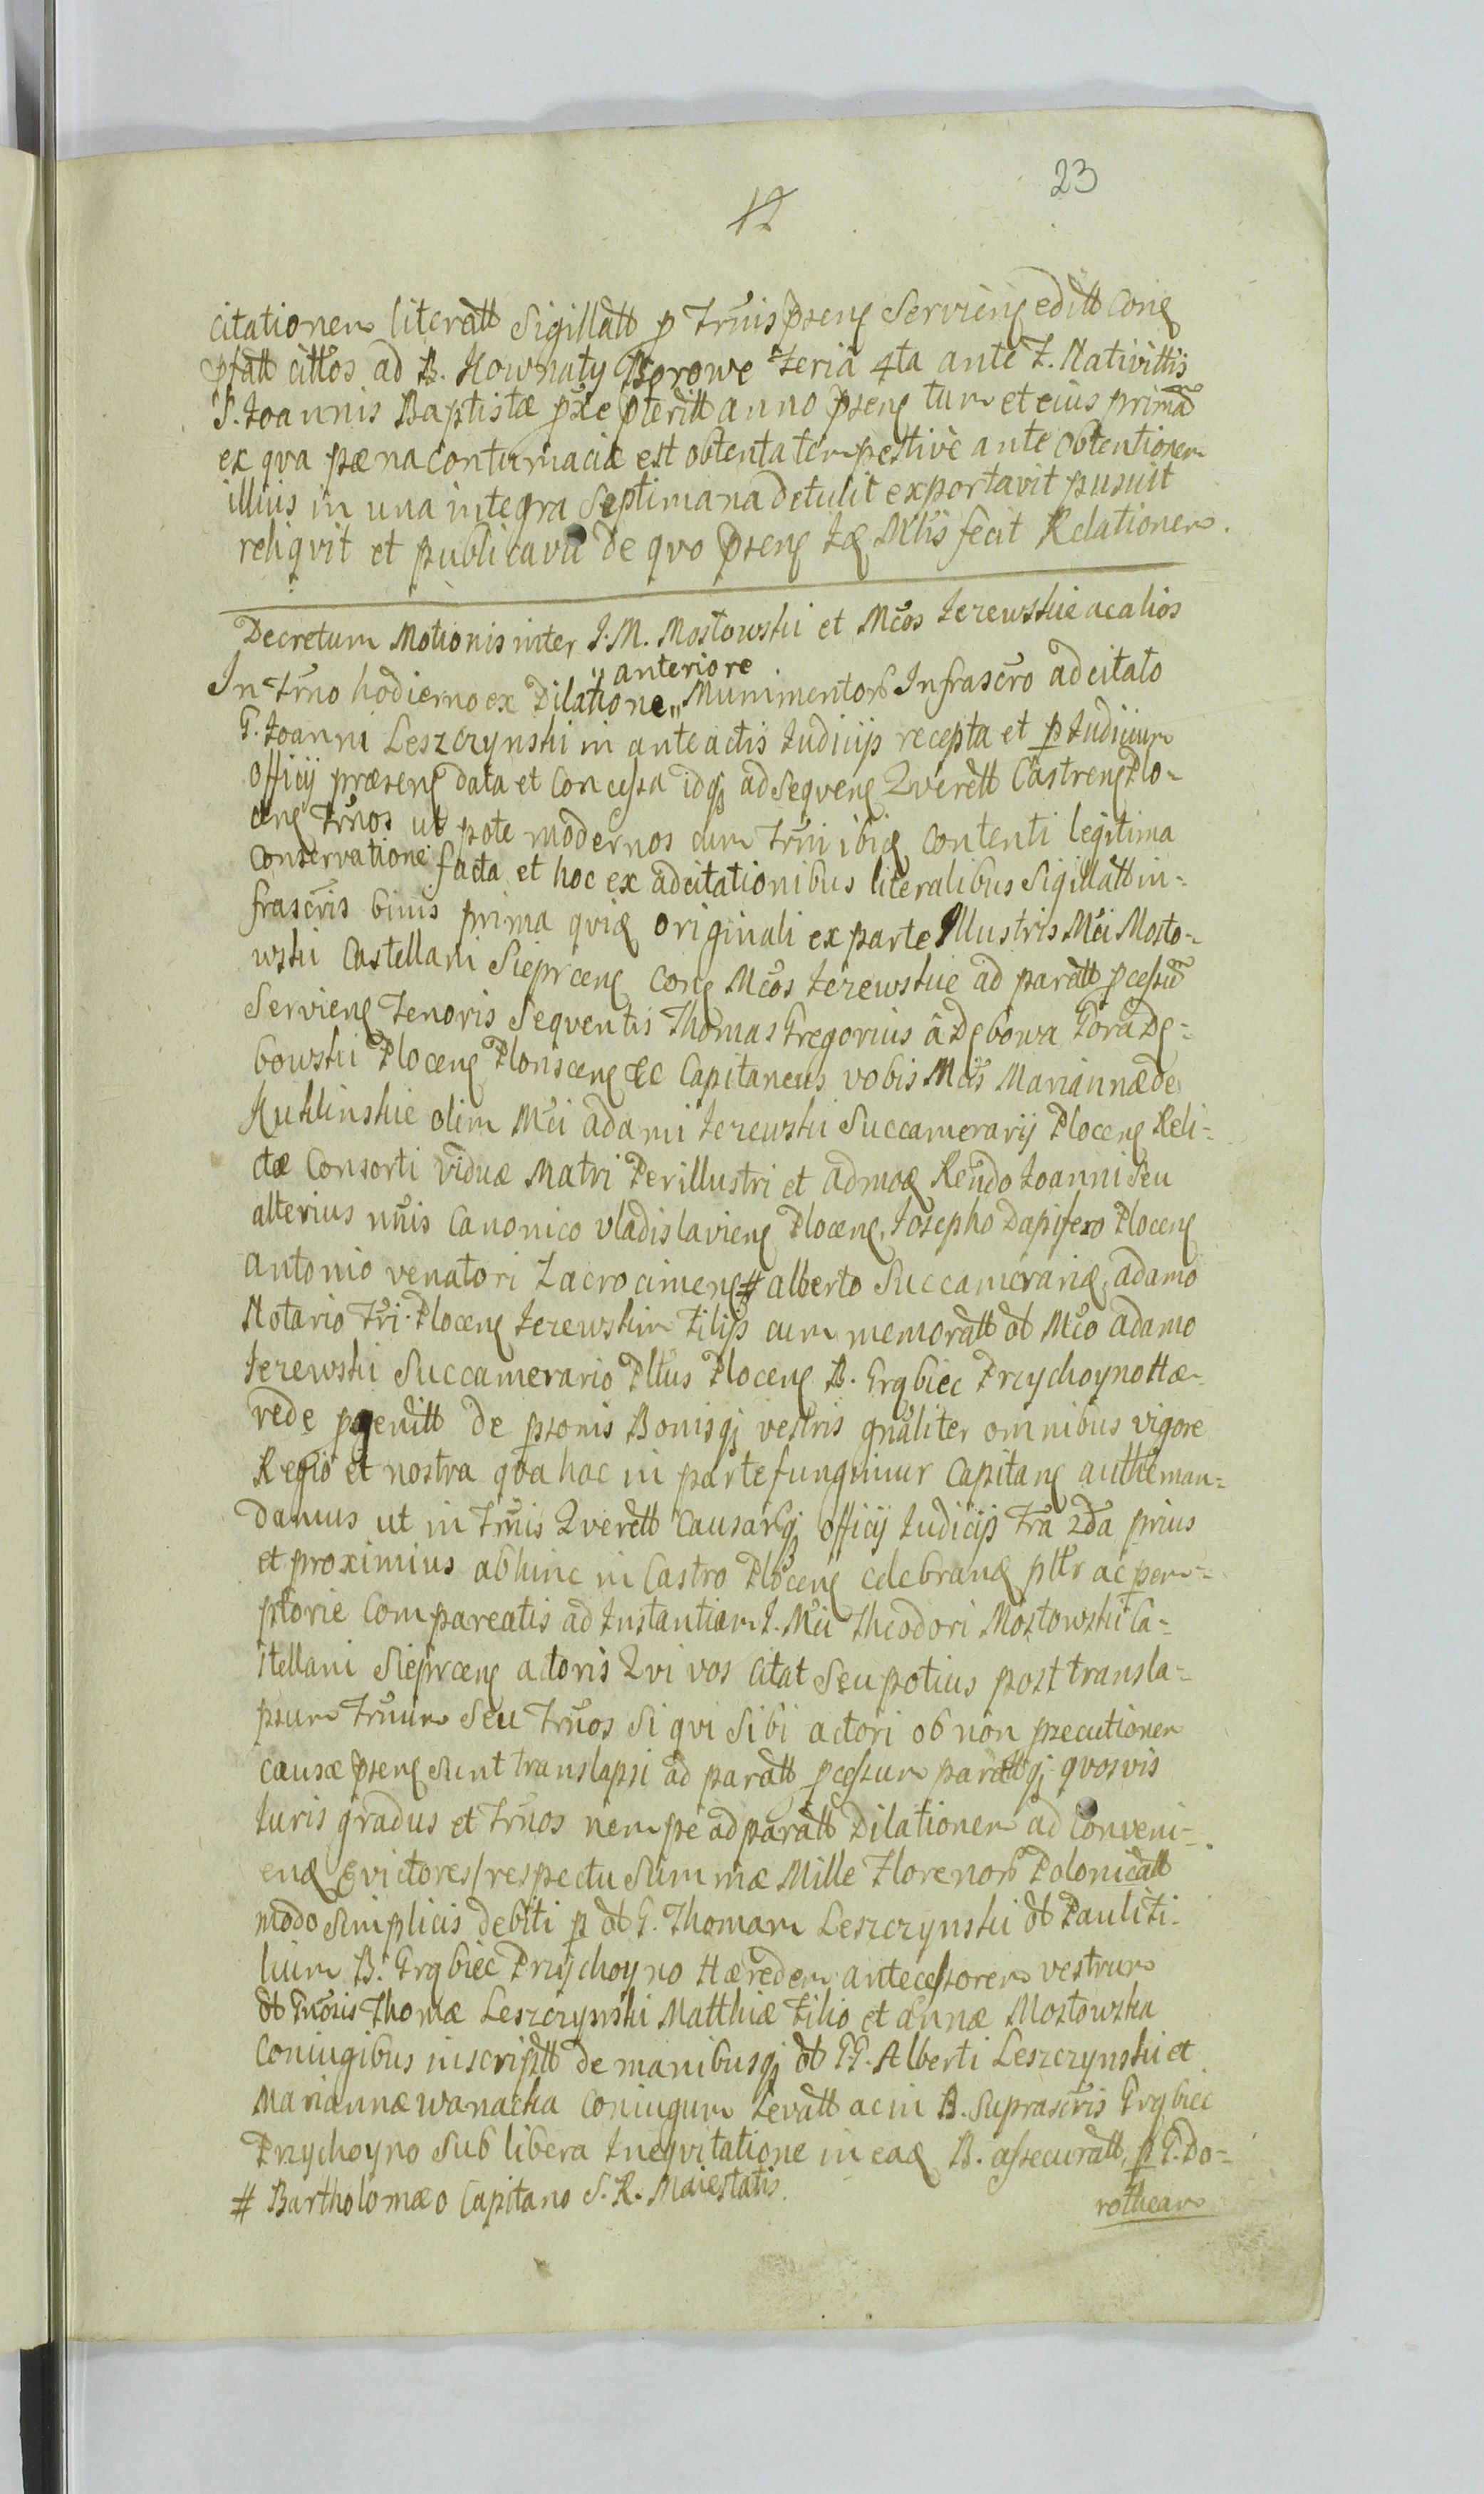 23
12
citationem literatt Sigillatt p Trnis pseng Servieng editt Cong
pfatt cittos ad B. Kownaty Borowe Feria 4ta ante F. Nativittis
S. Joannis Baptistæ pxe pteritt anno pseng tum et eius prima
ex qva pæna contumaciæ est obtenta tempestive ante obtentionem
illius in una integra Septimana detulit exportavit pusuit
reliqvit et publicavit de qvo pseng Jg Mlis fecit Relationem.
Decretum Motionis inter J. M. Mostowski et Mcos Jezewskie ac alios
In Trno hodierno ex Dilatione „ anteriore „ Munimentor Infrascro adcitato
G. Joanni Leszczynski in anteactis Judicijs recepta et p Judicium
officij præseng data et Concessa idq adseqveng Qverett Castreng Plo-
ceng Trnos ut pote modernos cum Trni ibig contenti legitima
Conservatione facta et hoc ex adcitationibus literalibus Sigillatt in-
frascris binis prima qvid originali ex parte Illustris Mci Mosto-
wski Castellani Sieprceng Cong Mcos Jezewskie ad paratt pcessu
Servieng Tenoris Seqventis Thomas Gregorius a Dębowa Gora Dę-
bowski Ploceng Plonsceng &c Capitaneus vobis Mcis Mariannæ de
Kuklinskie olim Mci Adami Jezewski Succamerarij Ploceng Reli-
ctæ Consorti viduæ Matri Perillustri et admog Rendo Joanni Seu
alterius nnis Canonico vladislavieng Ploceng, Josepho Dapifero Ploceng
Antonio venatori Zacrocimeng # alberto Succamerarig, adamo
Notario Tri Ploceng Jezewskim Filijs cum memoratt ot Mco Adamo
Jezewski Succamerario Pltus Ploceng B. Grąbiec Przychoyno Hæ-
rede pgenitt de psonis Bonisq vestris gnaliter omnibus vigore
Regio et nostra qva hac in parte fungimur Capitang authe man-
damus ut in Trnis Qverett Causarq officij Judicijs Fra 2da prius
et proximius abhinc in Castro Ploceng celebrang pltr ac pem-
ptorie Compareatis ad Instantiam J. Mci Theodori Mostowski Ca-
stellani Sieprceng actoris Qvi vos Citat Seu potius post transla-
psum Trnum Seu Trnos Si qvi Sibi actori ob non psecutionem
causæ pseng sunt translapsi ad paratt pcessum parattq qvosvis
Juris gradus et Trnos nempe ad paratt Dilationem ad Conveni-
eng Evictores / respectu Summæ Mille Florenor Polonicatt
modo Simplicis debiti p ot G. Thomam Leszczynski ot Pauli Fi-
lium B. Grąbiec Przychoyno Hæredem antecessorem vestrum
ot Gnosis Thomæ Leszczynski Matthiæ Filio et Annæ Mostowska
Coniugibus inscriptt de manibusq ot GG. Alberti Leszczynski et
Mariannæ wanacka Coniugum Levatt ac in B. Suprascris Grąbiec
Przychoyno Sub libera Ineqvitatione in eag B. assecuratt, p G. Do-
# Bartholomæo Capitano S. R. Maiestatis.
rotheam